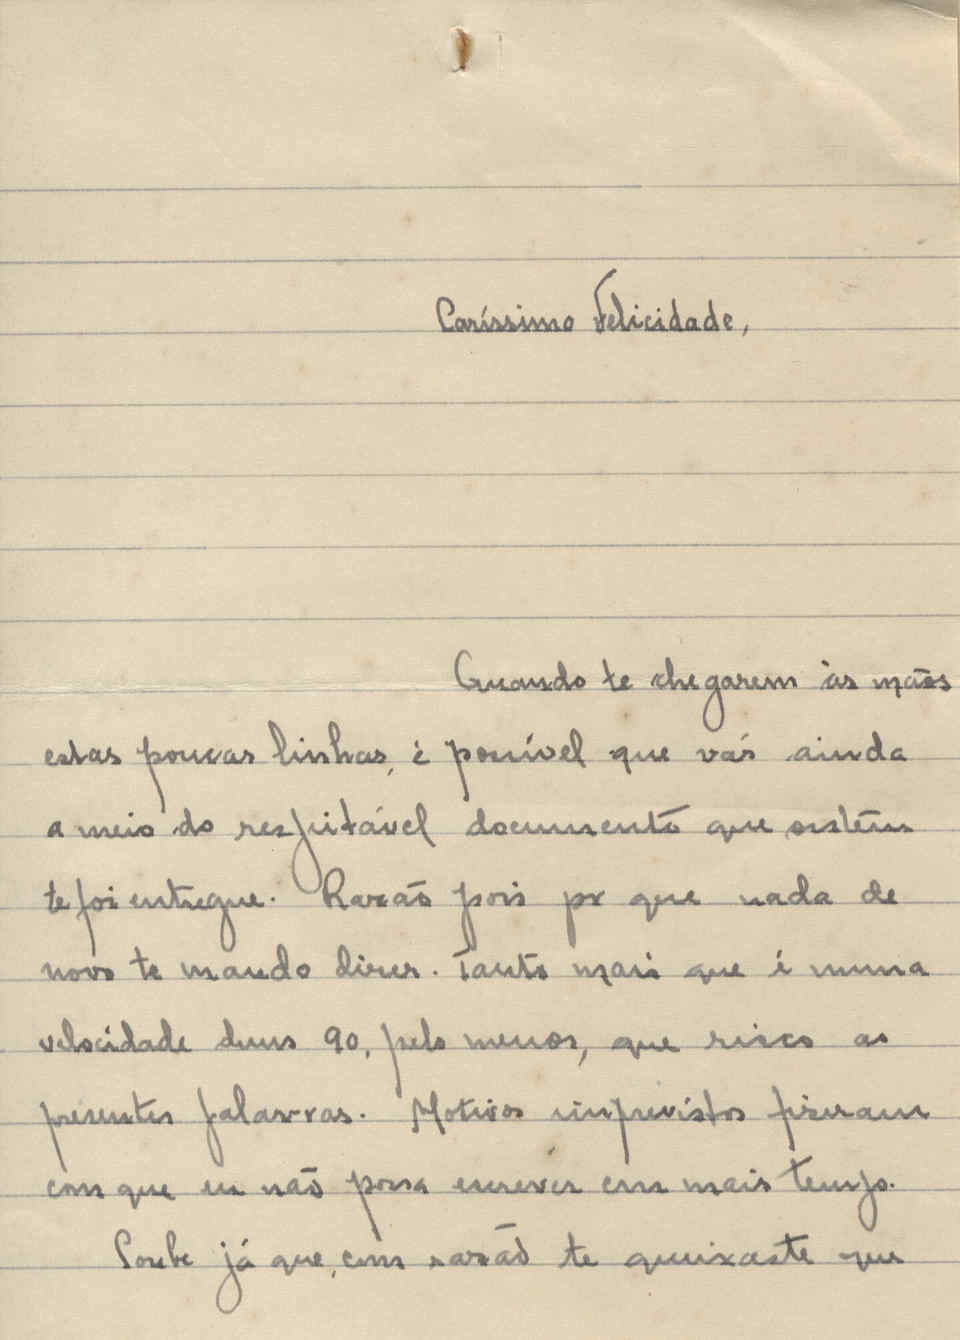 Caríssimo Felicidade,
Quando te chegarem às mãos
estas poucas linhas, é possível que vás ainda
a meio do respitável documento que ontem
te foi entregue. Razão pois pr que nada de
novo te mando dizer. Tanto mais que é numa
velocidade duns 90, pelo menos, que risco as
presentes palavras. Motivos imprevistos fizeram
com que eu não possa escrever com mais tempo.
Soube já que, com razão te queixaste que